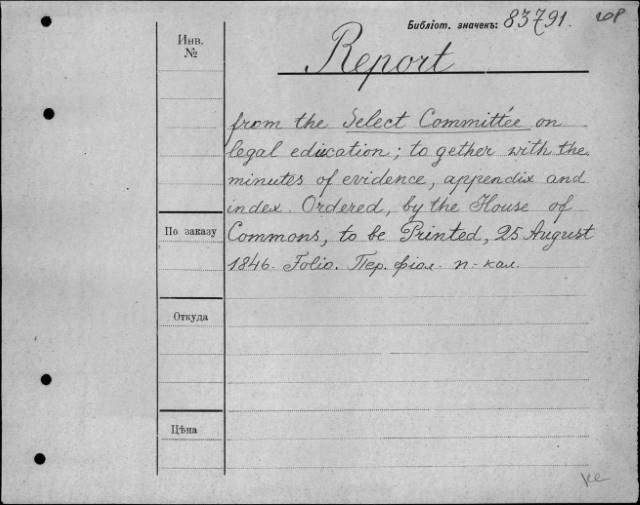 Библіот. значекъ: 83791. 208
Инв.
№
Report
from the Select Committee on
legal education; to gether with the
minutes of evidence, appendix and
index. Ordered, by the House of
По заказу
Commons, to be Printed, 25 August
1846. Folio. Пер. фіол. п-кал.
Откуда
Цѣна